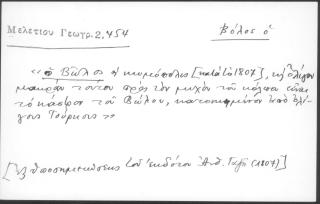 Μελετίου Γεωγρ. 2, 454
Βόλος ὁ
«ὁ Βῶλος ἡ κωμόπολις [κατὰ τὸ 1807], κὴ ὀλίγον
μακρὰν τούτου πρὸς τὸν μυχὸν τοῦ κόλπου εἶναι
τὸ κάστρο τοῦ Βώλου, κατοικημένον ὑπὸ ὀλί-
γους Τούρκους»
[ὑποσημειώσεις τοῦ ἐκδότου Ἀνθ. Γαζῆ (1807)]